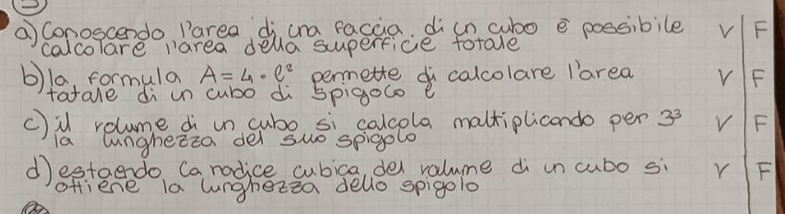 a) Conoscendo l'area di una faccia di un cubo è possibile V F
calcolare l'area della superficie totale
b) la formula A = 4 · l² permette di calcolare l'area V F
totale di un cubo di spigolo l
c) il volume di un cubo si calcola maltiplicando per 3³ V F
la lunghezza del suo spigolo
d) estraendo la radice cubica del volume di un cubo si V F
ottiene la lunghezza dello spigolo